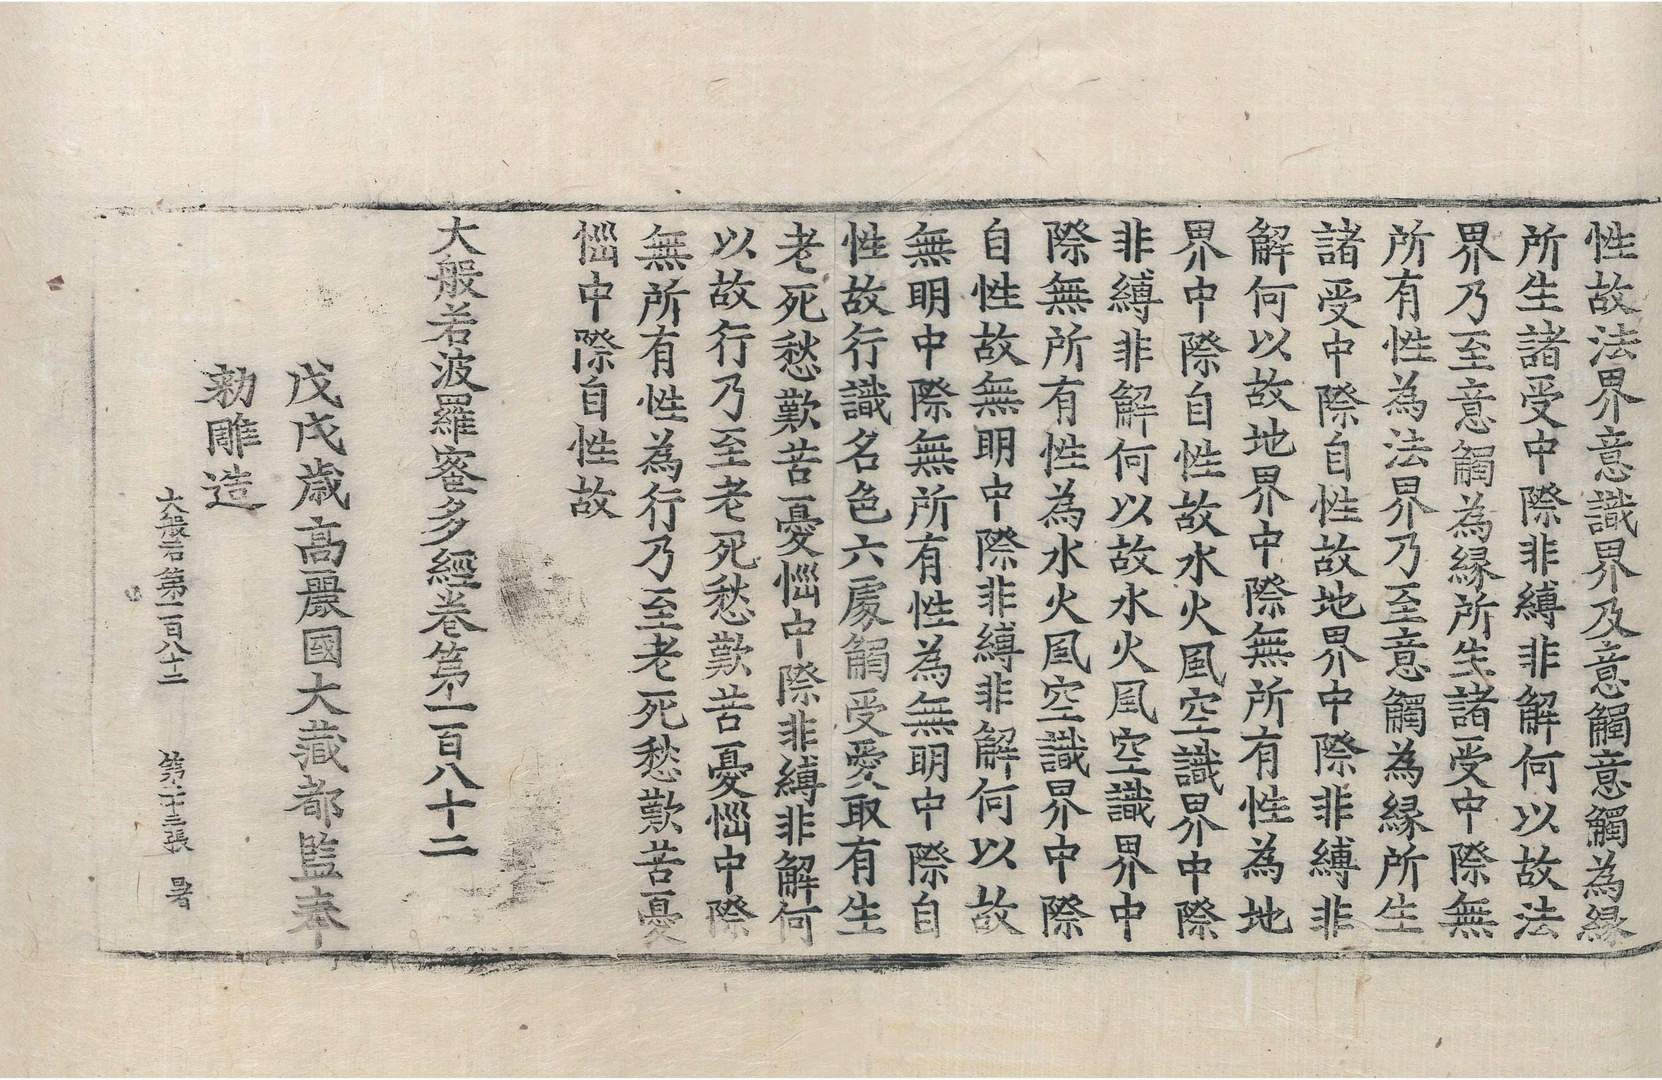 性故法界意識界及意觸意觸為縁
所生諸受中際非縛非解何以故法
界乃至意觸為縁所生諸受中際無
所有性為法界乃至意觸為縁所生
諸受中際自性故地界中際非縛非
解何以故地界中際無所有性為地
界中際自性故水火風空識界中際
非縛非解何以故水火風空識界中
際無所有性為水火風空識界中際
自性故無明中際非縛非解何以故
無明中際無所有性為無明中際自
性故行識名色六處觸受愛取有生
老死愁歎苦憂惱中際非縛非解何
以故行乃至老死愁歎苦憂惱中際
無所有性為行乃至老死愁歎苦憂
惱中際自性故
大般若波羅蜜多經卷第一百八十二
戊戌歲高麗國大藏都監奉
勅雕造
大般若第一百八十二 第二十三張